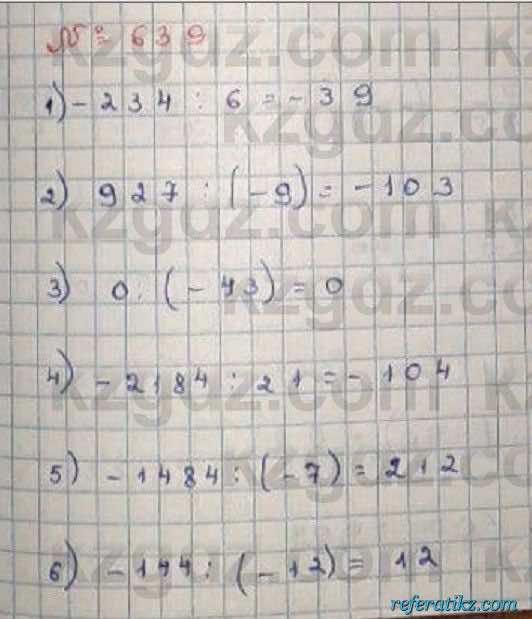 № 639
1) - 234 : 6 = - 39
2) 927 : (- 9) = - 103
3) 0 : (- 43) = 0
4) - 2184 : 21 = - 104
5) - 1484 : (- 7) = 212
6) - 144 : (- 12) = 12
referatikz.com